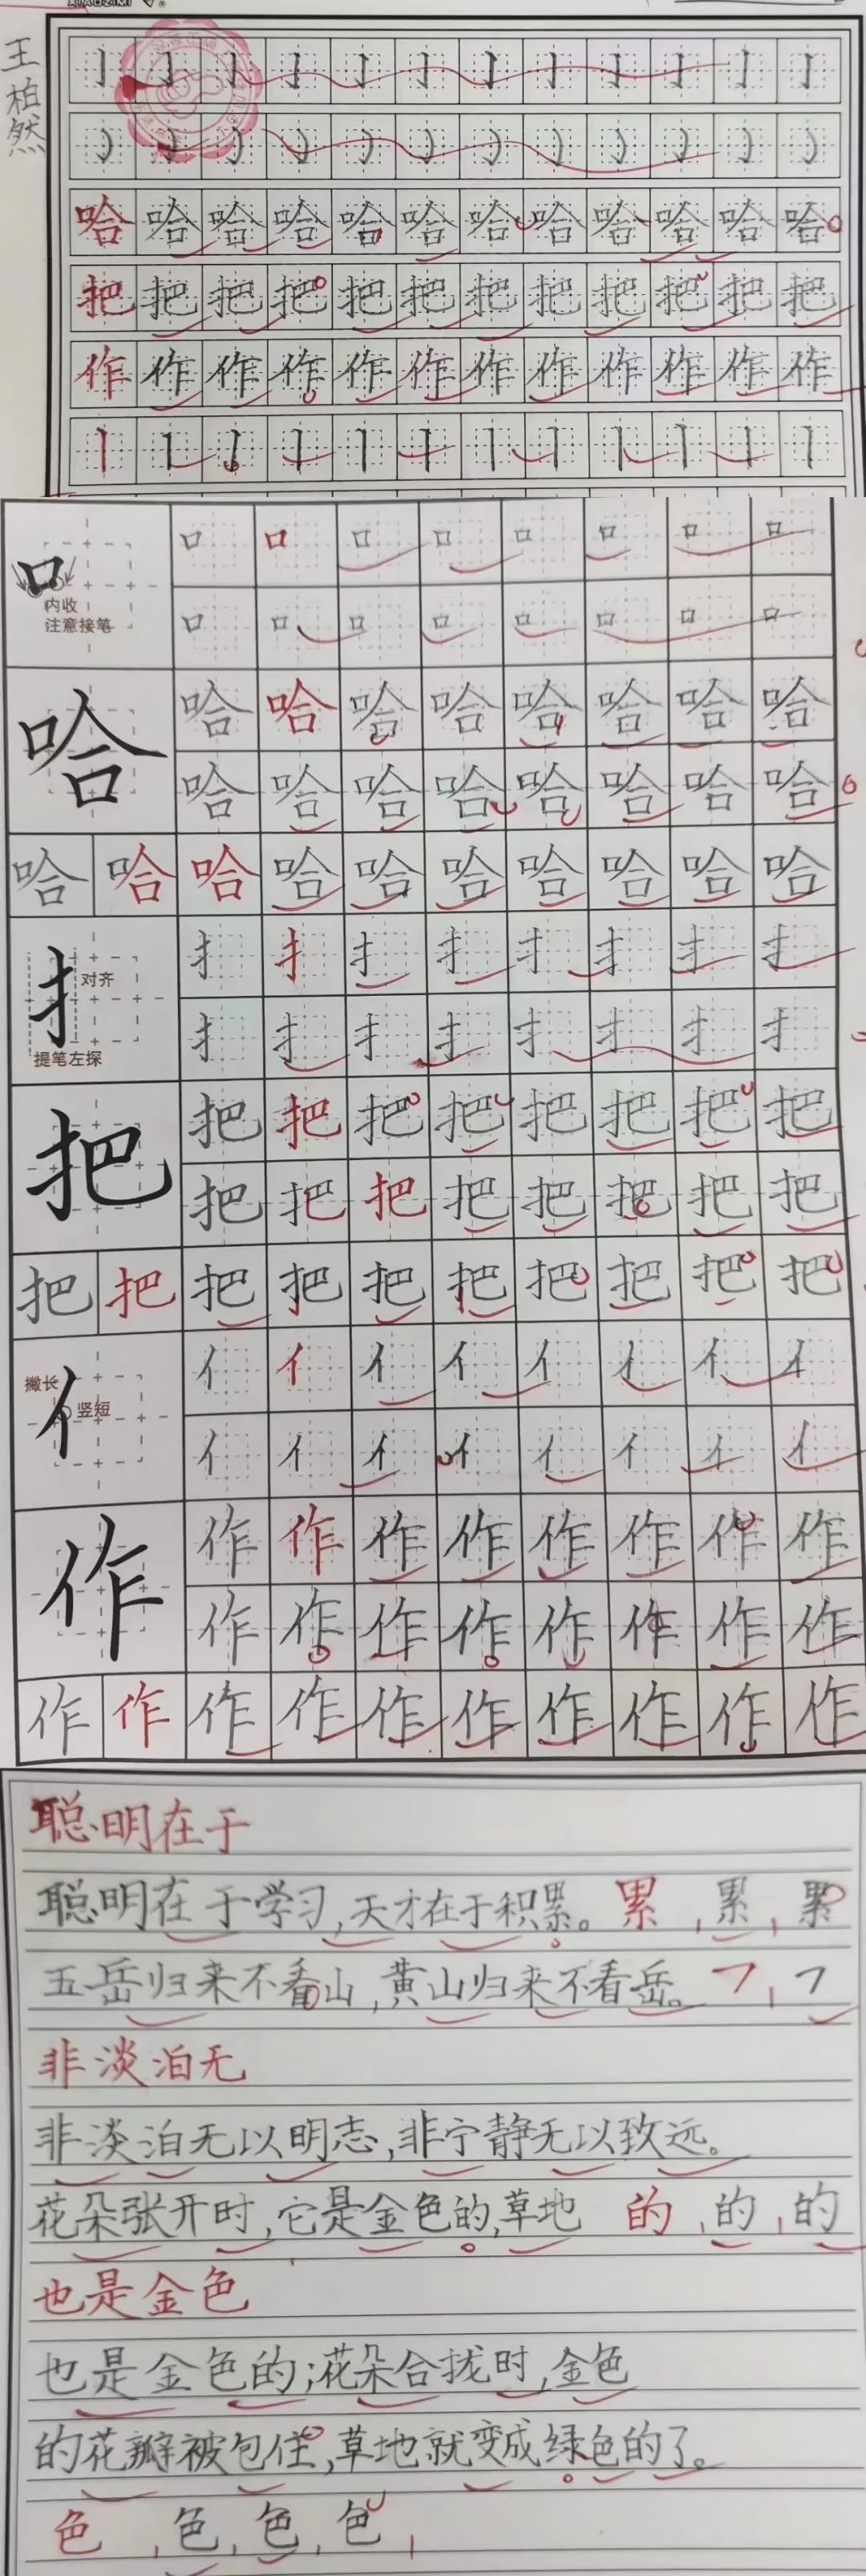 王柏然
亅亅亅亅亅亅亅亅亅亅亅亅
哈哈哈哈哈哈哈哈哈哈哈哈
把把把把把把把把把把把把
作作作作作作作作作作作作
丨丨亅丨丨丨丨丨丨丨丨丨
口口口口口口口口口
内收
注意接笔
口口口口口口口口
哈哈哈哈哈哈哈哈哈
哈哈哈哈哈哈哈哈
哈哈哈哈哈哈哈哈哈
扌扌扌扌扌扌扌扌扌
对齐
提笔左探
扌扌扌扌扌扌扌扌
把把把把把把把把把
把把把把把把把把
把把把把把把把把把把
亻亻亻亻亻亻亻亻亻
撇长
竖短
亻亻亻亻亻亻亻亻
作作作作作作作作作
作作作作作作作作
作作作作作作作作作作
聪明在于
聪明在于学习,天才在于积累。累,累,累
五岳归来不看山,黄山归来不看岳。
非淡泊无
非淡泊无以明志,非宁静无以致远。
花朵张开时,它是金色的,草地 的,的,的
也是金色
也是金色的;花朵合拢时,金色
的花瓣被包住,草地就变成绿色的了。
色,色,色,色,